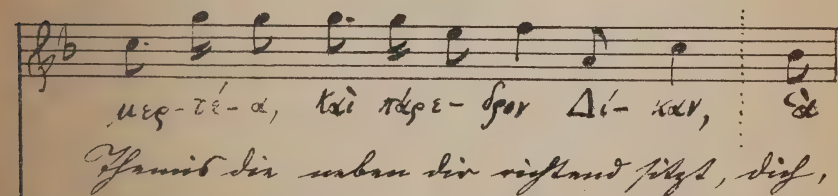 μερ-τέ-α, καὶ πάρε-δρον Δί-καν, ἃ
Themis die neben dir richtend sitzt, dich,